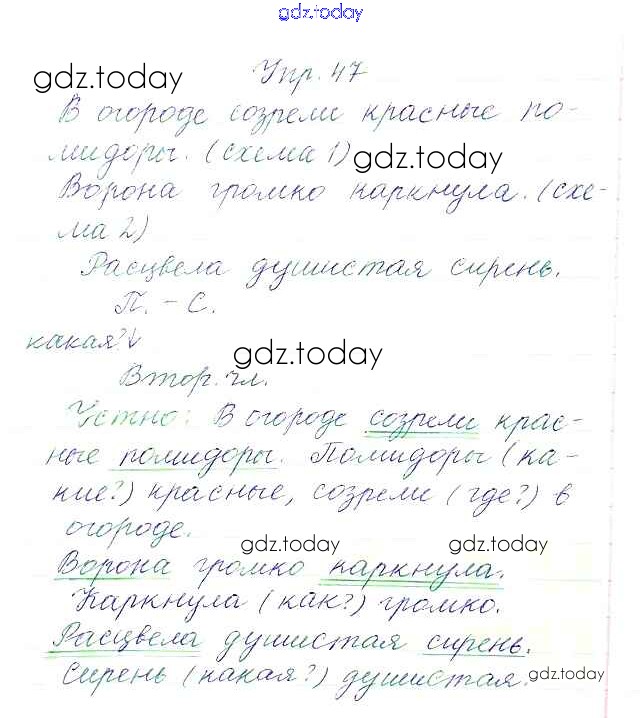 gdz.today
Упр. 47
gdz.today
В огороде созрели красные по-
мидоры. (схема 1)
gdz.today
Ворона громко каркнула. (схе-
ма 2)
Расцвела душистая сирень.
П. - С.
какая?↓
gdz.today
Втор. чл.
Устно: В огороде созрели крас-
ные помидоры. Помидоры (ка-
кие?) красные, созрели (где?) в
огороде.
gdz.today gdz.today
Ворона громко каркнула.
Каркнула (как?) громко.
Расцвела душистая сирень.
Сирень (какая?) душистая.
gdz.today